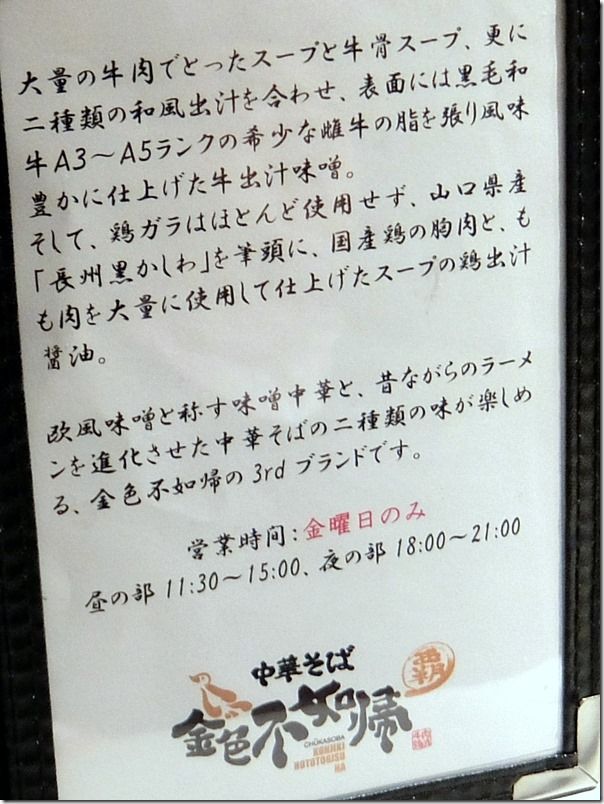 大量の牛肉でとったスープと牛骨スープ、更に
二種類の和風出汁を合わせ、表面には黒毛和
牛A3～A5ランクの希少な雌牛の脂を張り風味
豊かに仕上げた牛出汁味噌。
そして、鶏ガラはほとんど使用せず、山口県産
「長州黒かしわ」を筆頭に、国産鶏の胸肉と、も
も肉を大量に使用して仕上げたスープの鶏出汁
醤油。
欧風味噌と称す味噌中華と、昔ながらのラーメ
ンを進化させた中華そばの二種類の味が楽しめ
る、金色不如帰の3rdブランドです。
営業時間：金曜日のみ
昼の部 11:30～15:00、夜の部 18:00～21:00
中華そば
覇
金色不如帰
CHUKASOBA
KONJIKI
HOTOTOGISU
HA